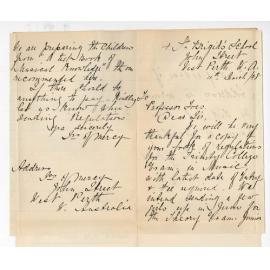 St Brigid's School
John Street
West Perth W.A.
Professor Ives.
Dear Sir,
I will be very
thankful for a copy of
your book of regulations
for the Trinity College
Exams in Music
with latest date of Entry
& Fee required. I
intend sending a few
girls up in June for
the Theory Exam. Junior
We are preparing the Children
from "A text Book of
Musical Knowledge" the one
recommended
If there should be
anything to pay kindly
let us know when
sending Regulations
Yrs sincerely
Srs of Mercy
Address
Srs of Mercy
John Street
West Perth
W. Australia